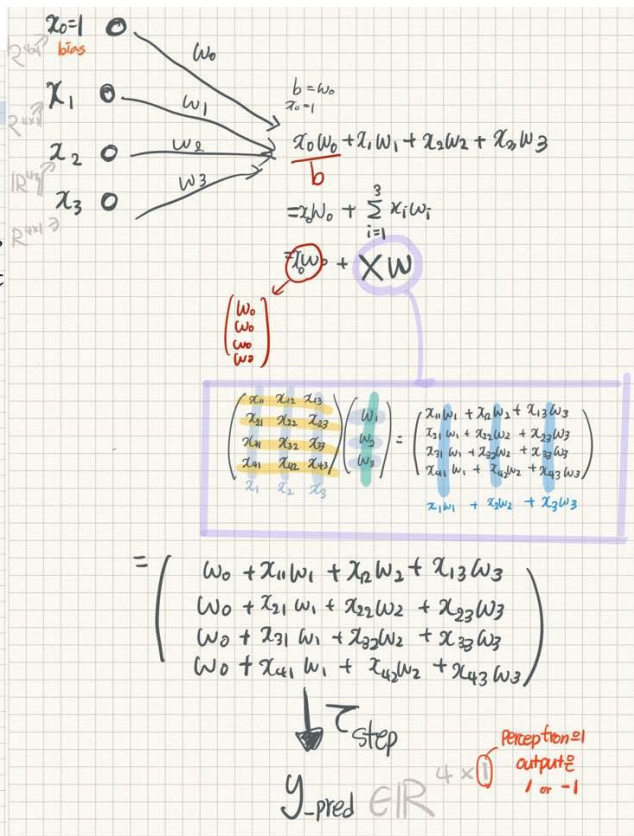 x₀=1
bias
w₀
x₁
w₁
x₂
w₂
x₃
w₃
ℝ⁴ˣ¹
b = w₀
x₀=1
x₀w₀ + x₁w₁ + x₂w₂ + x₃w₃
b
= x₀w₀ + Σ xᵢwᵢ
3
i=1
= x₀w₀ + Xw
w₀
w₀
w₀
w₂
( x₁₁ x₁₂ x₁₃ ) ( w₁ ) = ( x₁₁w₁ + x₁₂w₂ + x₁₃w₃ )
x₂₁ x₂₂ x₂₃ w₂ x₂₁w₁ + x₂₂w₂ + x₂₃w₃
x₃₁ x₃₂ x₃₃ w₃ x₃₁w₁ + x₃₂w₂ + x₃₃w₃
x₄₁ x₄₂ x₄₃ x₄₁w₁ + x₄₂w₂ + x₄₃w₃
x₁ x₂ x₃
x₁w₁ + x₂w₂ + x₃w₃
= ( w₀ + x₁₁w₁ + x₁₂w₂ + x₁₃w₃
w₀ + x₂₁w₁ + x₂₂w₂ + x₂₃w₃
w₀ + x₃₁w₁ + x₃₂w₂ + x₃₃w₃
w₀ + x₄₁w₁ + x₄₂w₂ + x₄₃w₃ )
τ step
y_pred ∈ ℝ 4×1
perceptron의
output은
1 or -1